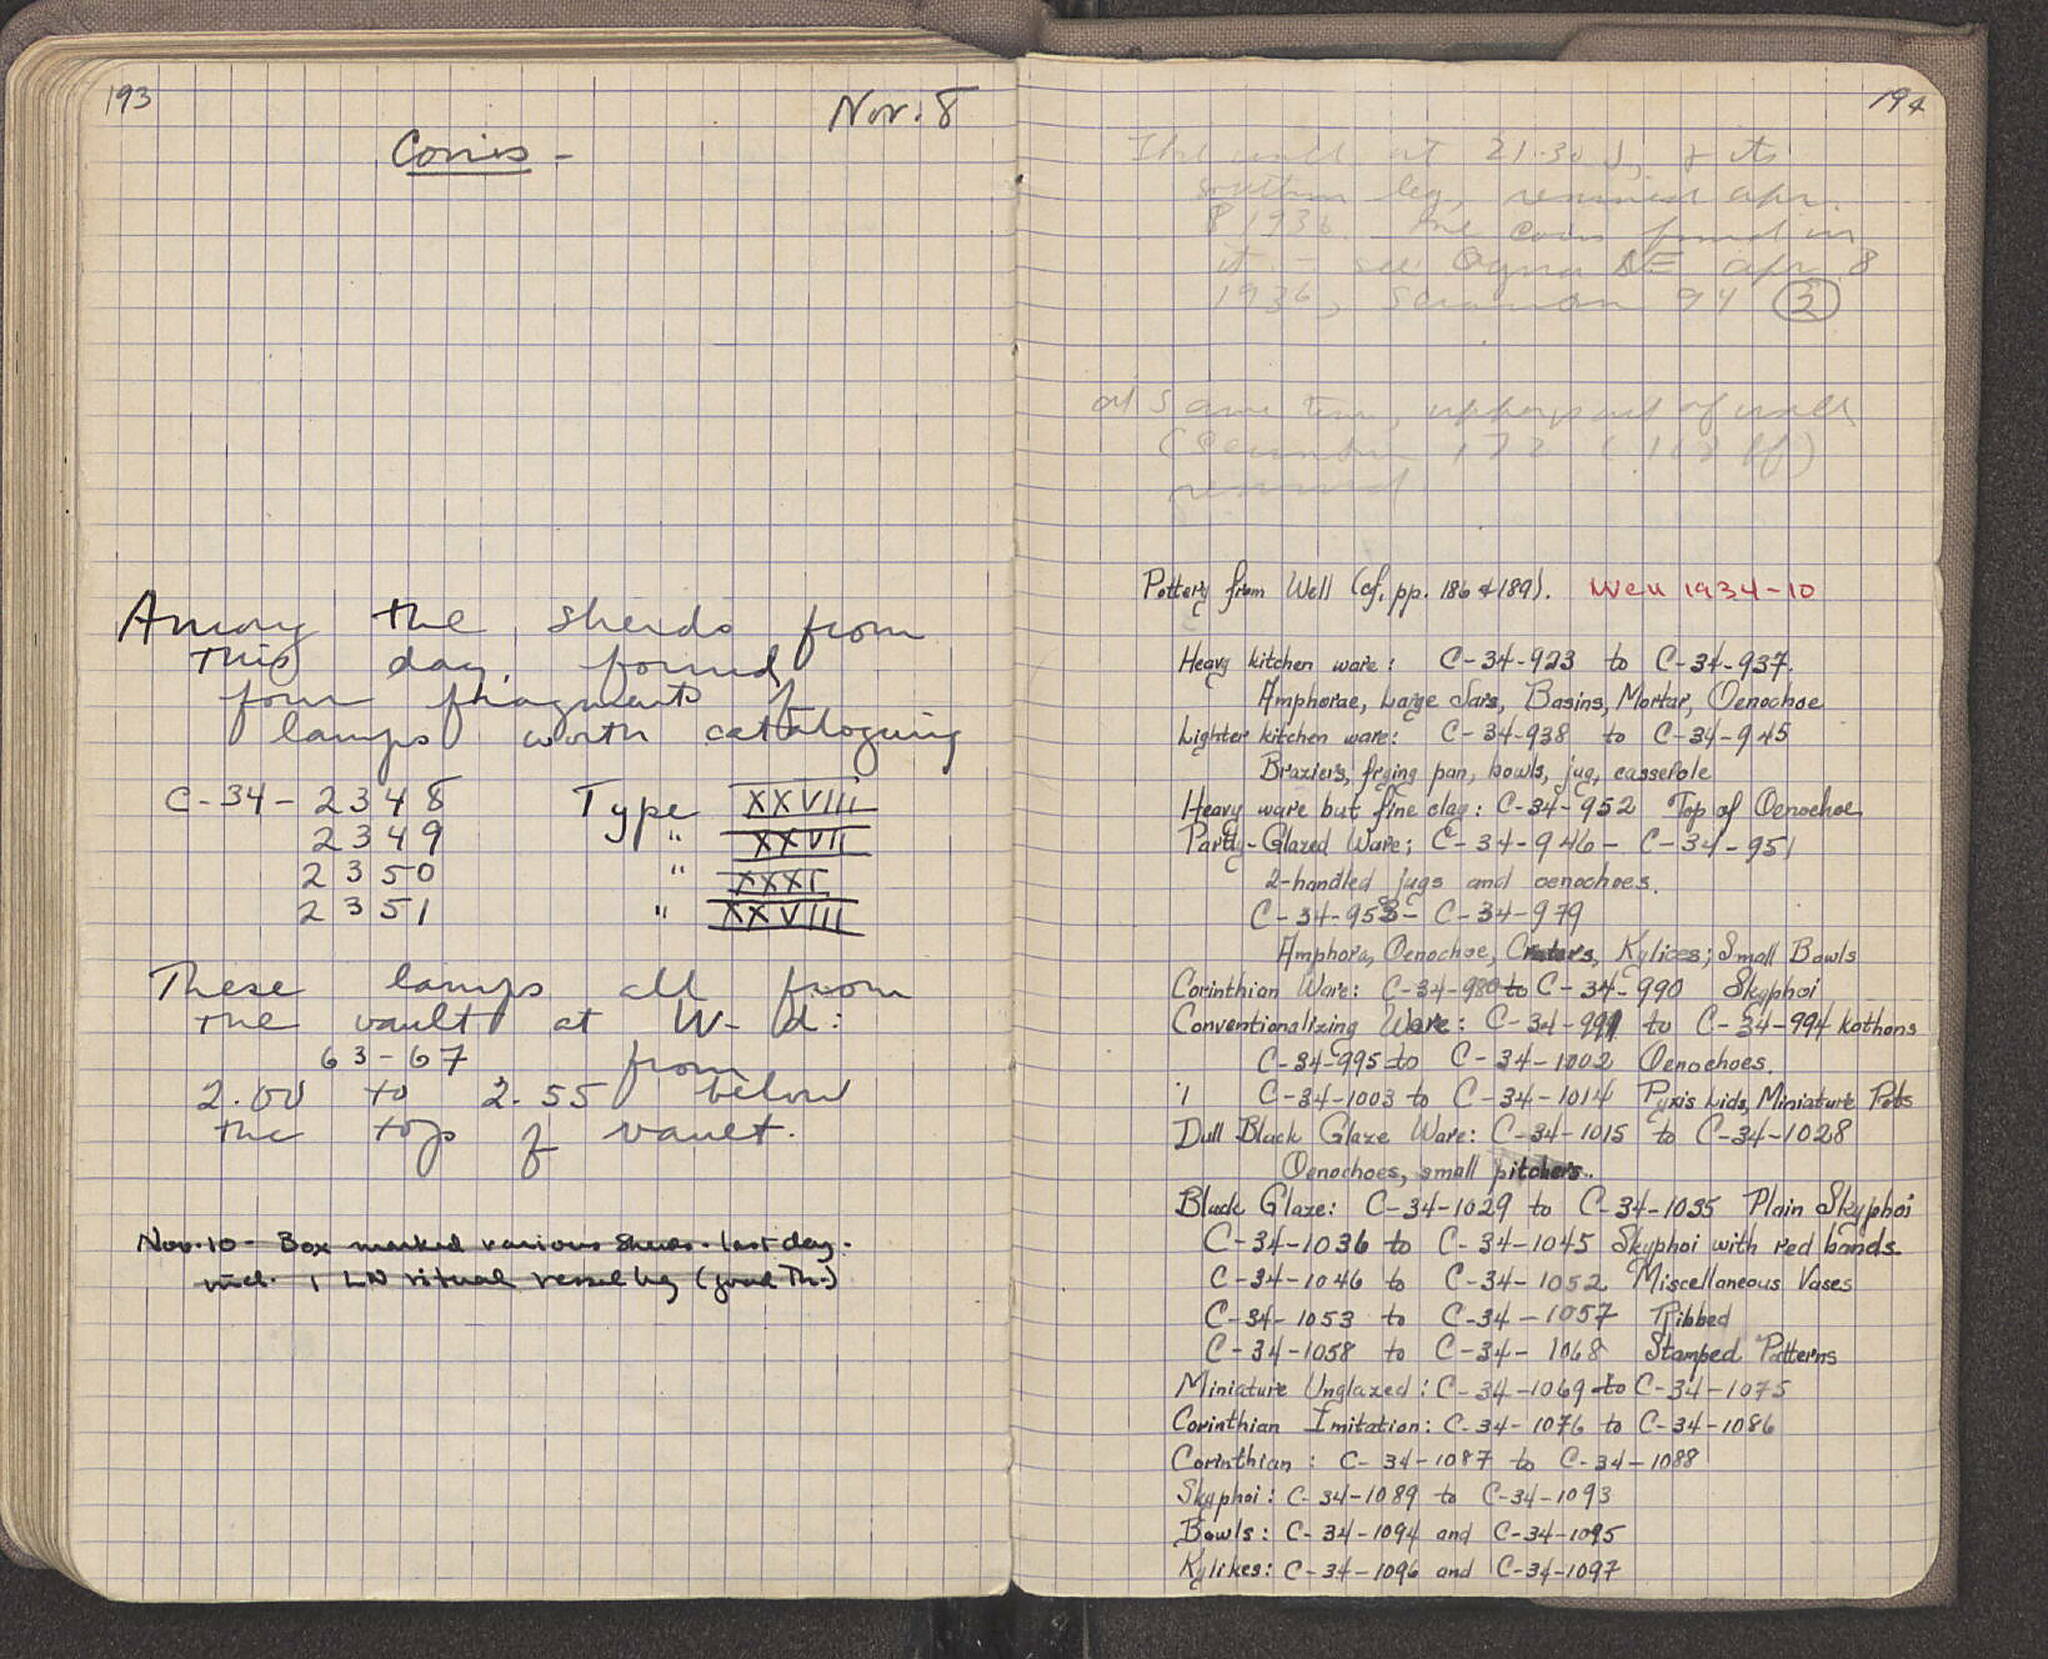 193
Nov. 8
Coins -
Among the sherds from
this day, found
four fragments of
lamps worth cataloguing
C-34- 2348 Type XXVIII
2349 " XXVII
2350 " XXXI
2351 " XXVIII
These lamps all from
the vault at W- d:
63-67 from
2.00 to 2.55 below
the top of vault.
Nov. 10 - Box marked various sherds - last day -
incl. 1 LN ritual vessel leg
194
The wall at 21-30 , & its
southern leg, removed Apr.
8 1936. The coins found in
it - see Agora ΔΕ Apr 8
1936, 94 2
At same time, upper part of wall
172
removed
Pottery from Well (cf, pp. 186 & 189). Well 1934-10
Heavy kitchen ware: C-34-923 to C-34-937.
Amphorae, Large Jars, Basins, Mortar, Oenochoe
Lighter kitchen ware: C-34-938 to C-34-945
Braziers, frying pan, bowls, jug, casserole
Heavy ware but fine clay: C-34-952 Top of Oenochoe
Partly-Glazed Ware; C-34-946 - C-34-951
2-handled jugs and oenochoes.
C-34-953- C-34-979
Amphora, Oenochoe, Craters, Kylices; Small Bowls
Corinthian Ware: C-34-980 to C-34-990 Skyphoi
Conventionalizing Ware: C-34-991 to C-34-994 Kothons
C-34-995 to C-34-1002 Oenochoes.
C-34-1003 to C-34-1014 Pyxis Lids, Miniature Pots
Dull Black Glaze Ware: C-34-1015 to C-34-1028
Oenochoes, small pitchers.
Black Glaze: C-34-1029 to C-34-1035 Plain Skyphoi
C-34-1036 to C-34-1045 Skyphoi with red bands.
C-34-1046 to C-34-1052 Miscellaneous Vases
C-34-1053 to C-34-1057 Ribbed
C-34-1058 to C-34-1068 Stamped Patterns
Miniature Unglazed: C-34-1069 to C-34-1075
Corinthian Imitation: C-34-1076 to C-34-1086
Corinthian: C-34-1087 to C-34-1088
Skyphoi: C-34-1089 to C-34-1093
Bowls: C-34-1094 and C-34-1095
Kylikes: C-34-1096 and C-34-1097